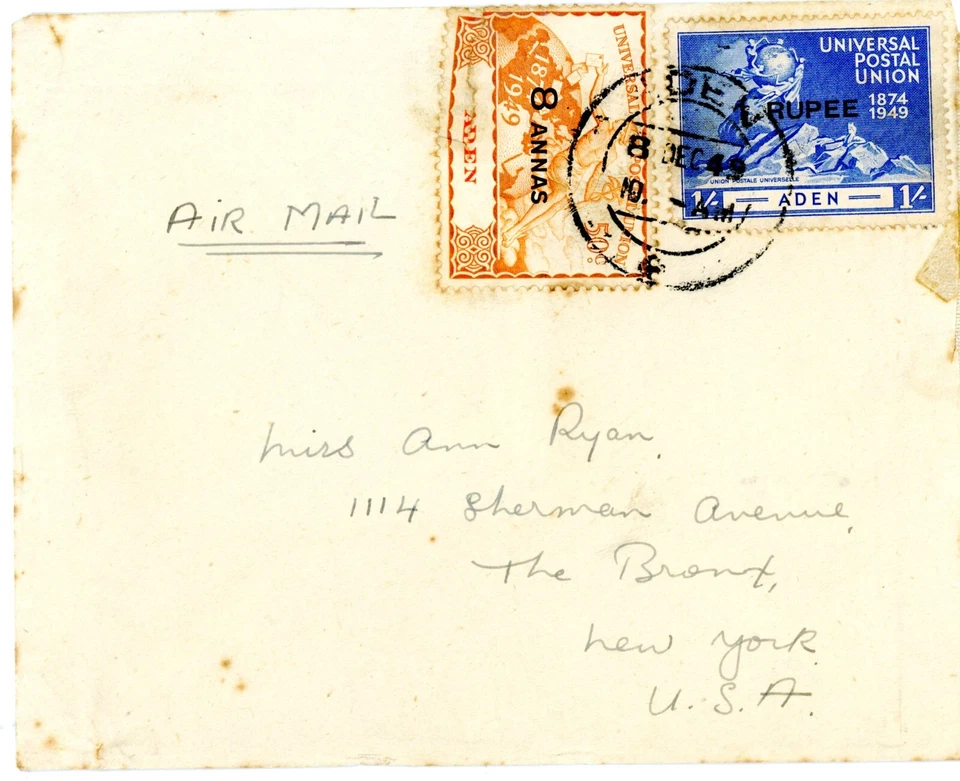 UNIVERSAL POSTAL UNION
1874
1949
8 ANNAS
ADEN
50c.
UNIVERSAL
POSTAL
UNION
1874
1949
1 RUPEE
UNION POSTALE UNIVERSELLE
1/- ADEN 1/-
ADEN
8 DEC 49
10. AM
AIR MAIL
Miss Ann Ryan,
1114 Sherman Avenue,
The Bronx,
New York
U.S.A.